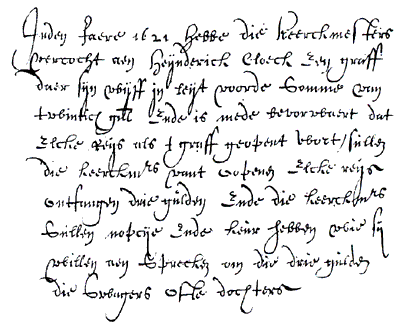 Inden Jaere 1621 hebbe die kerckmesters
vercocht aen Heÿnderick Cloeck Een graff
daer sÿn wÿff in leÿt voorde Somme van
twintich gll Ende is mede bevorwaert dat
Elcke Reÿs als t graff geopent wort / süllen
die kerckmrs vant oopenen Elcke reÿs
ontfangen drie gülden Ende die kerckmrs
Süllen Ende keür hebben wie sÿ
willen aen Sprecken om die drie gülden
die Swagers ofte dochters